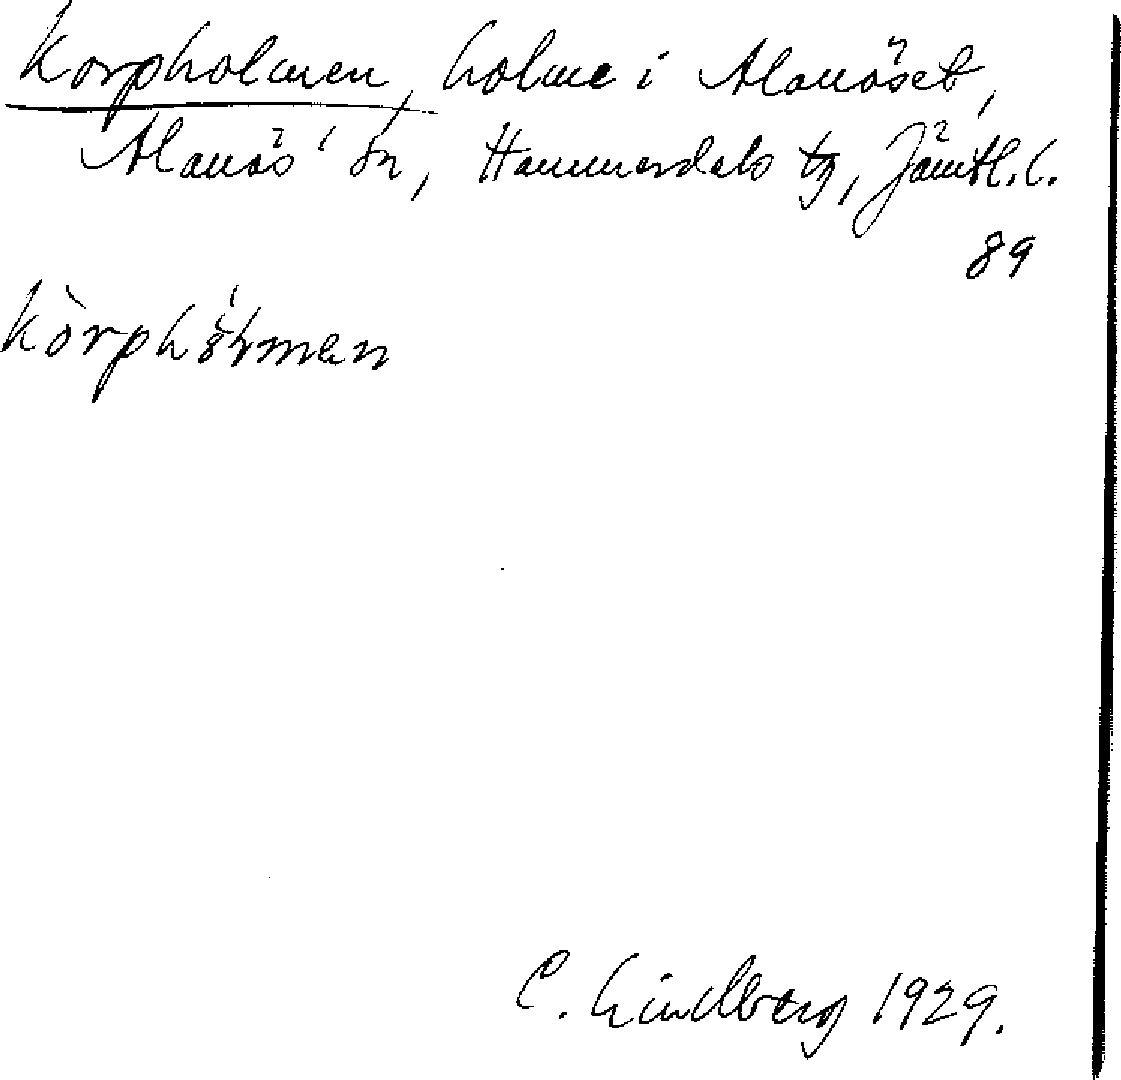 Korpholmen, holme i Alanäset,
Alanäs' sn, Hammerdals tg, Jämtl. l.
89
kòrphółmen
C. Lindberg 1929.